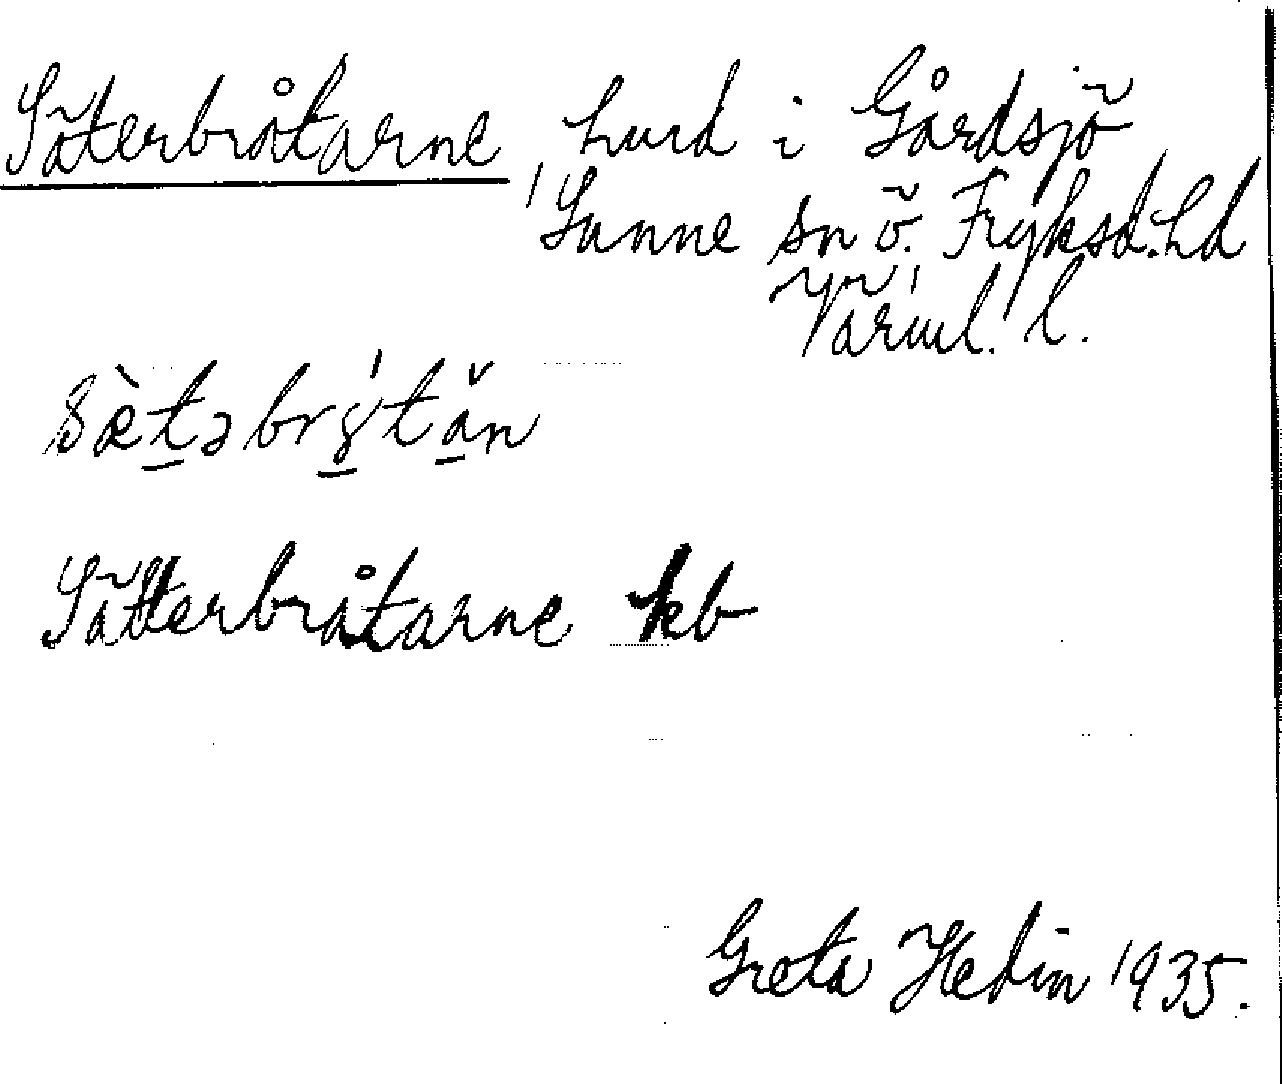 Säterbråtarne, hmd i Gårdsjö
Sunne sn ö. Fryksd. hd
Värml. l.
Sätterbråtarne kb
Greta Hedin 1935.